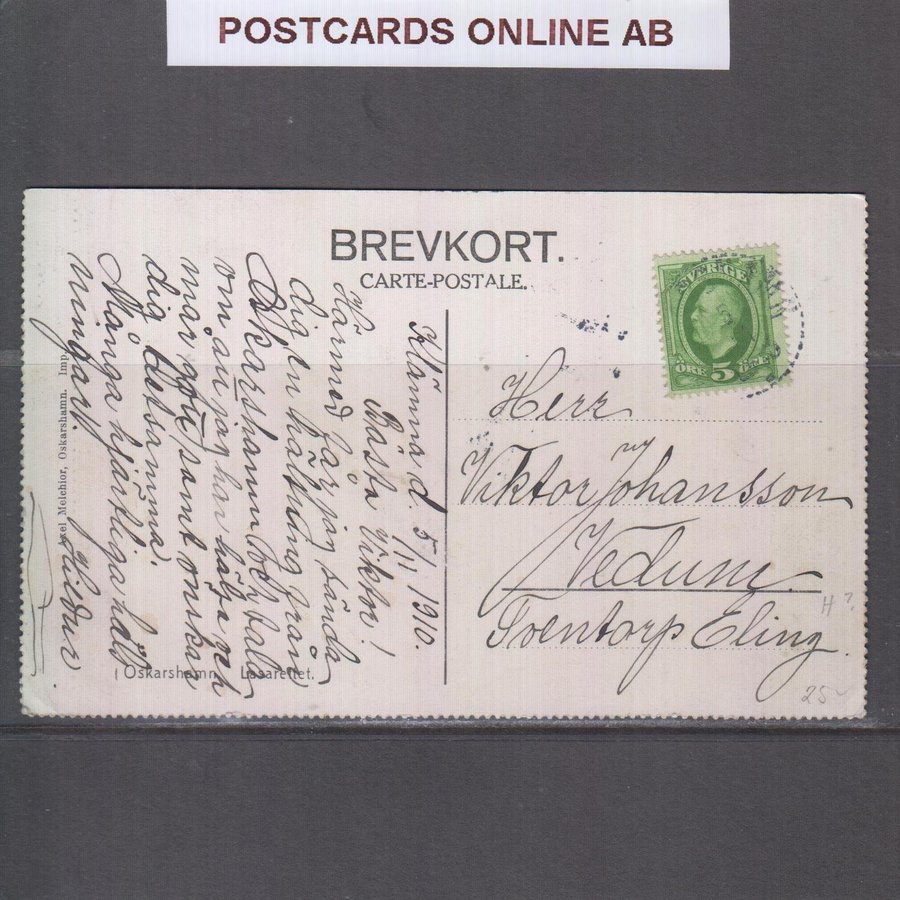 POSTCARDS ONLINE AB
BREVKORT.
CARTE-POSTALE.
SVERIGE
ÖRE 5 ÖRE
Herr
Viktor Johansson
Vedum
Tventorp Eling.
H ?
25
d. 5/11 1910.
Bästa Viktor!
Härmed får jag sända
dig en hälsning från
Oskarshamn och tala
om att jag har hälsan och
mår gott, samt önskar
dig detsamma.
Många hjärtliga
ningar.
Oskarshamn. Lasarettet.
Axel Melchior, Oskarshamn. Imp.